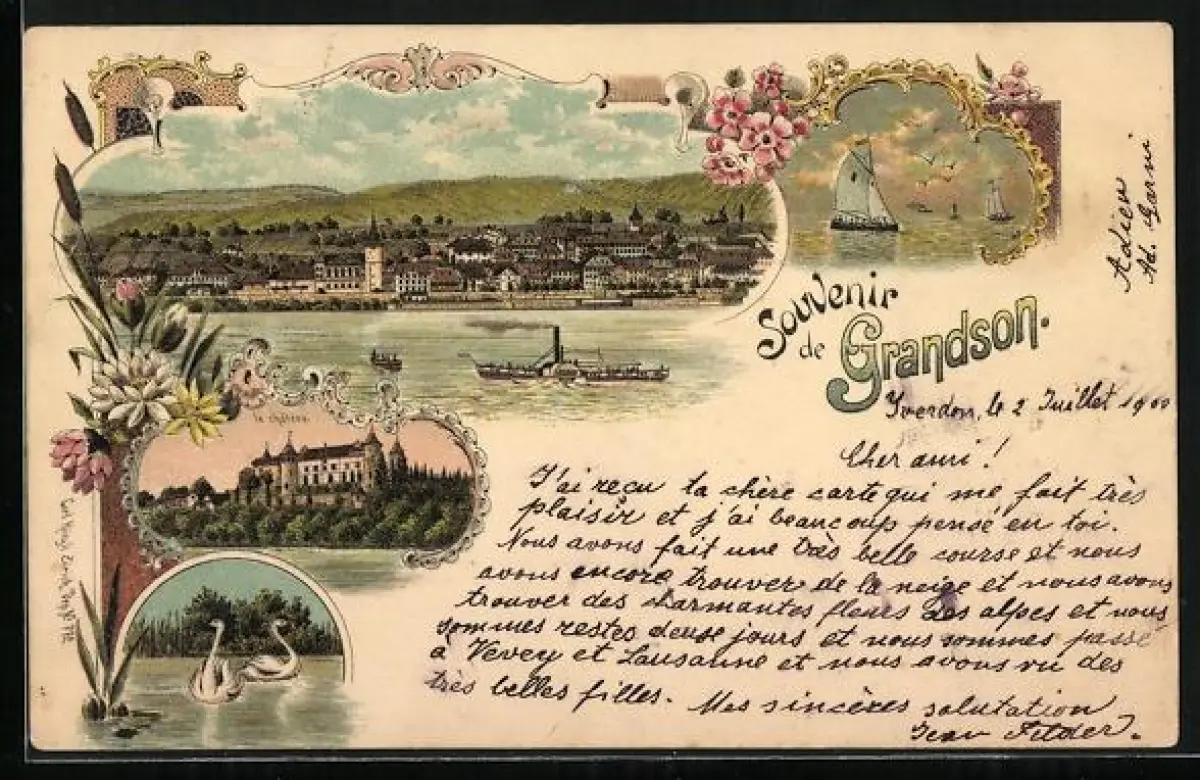 Souvenir
de Grandson.
le château.
Yverdon, le 2 Juillet 1900
Cher ami !
J'ai reçu ta chère carte qui me fait très
plaisir et j'ai beaucoup pensé en toi.
Nous avons fait une très belle course et nous
avons encore trouver de la neige et nous avons
trouver des charmantes fleurs des alpes et nous
sommes restes deuse jours et nous sommes passé
à Vevey et Lausanne et nous avons vu des
très belles filles. Mes sincères salutation
Jean
Adieu
Ad. Garni